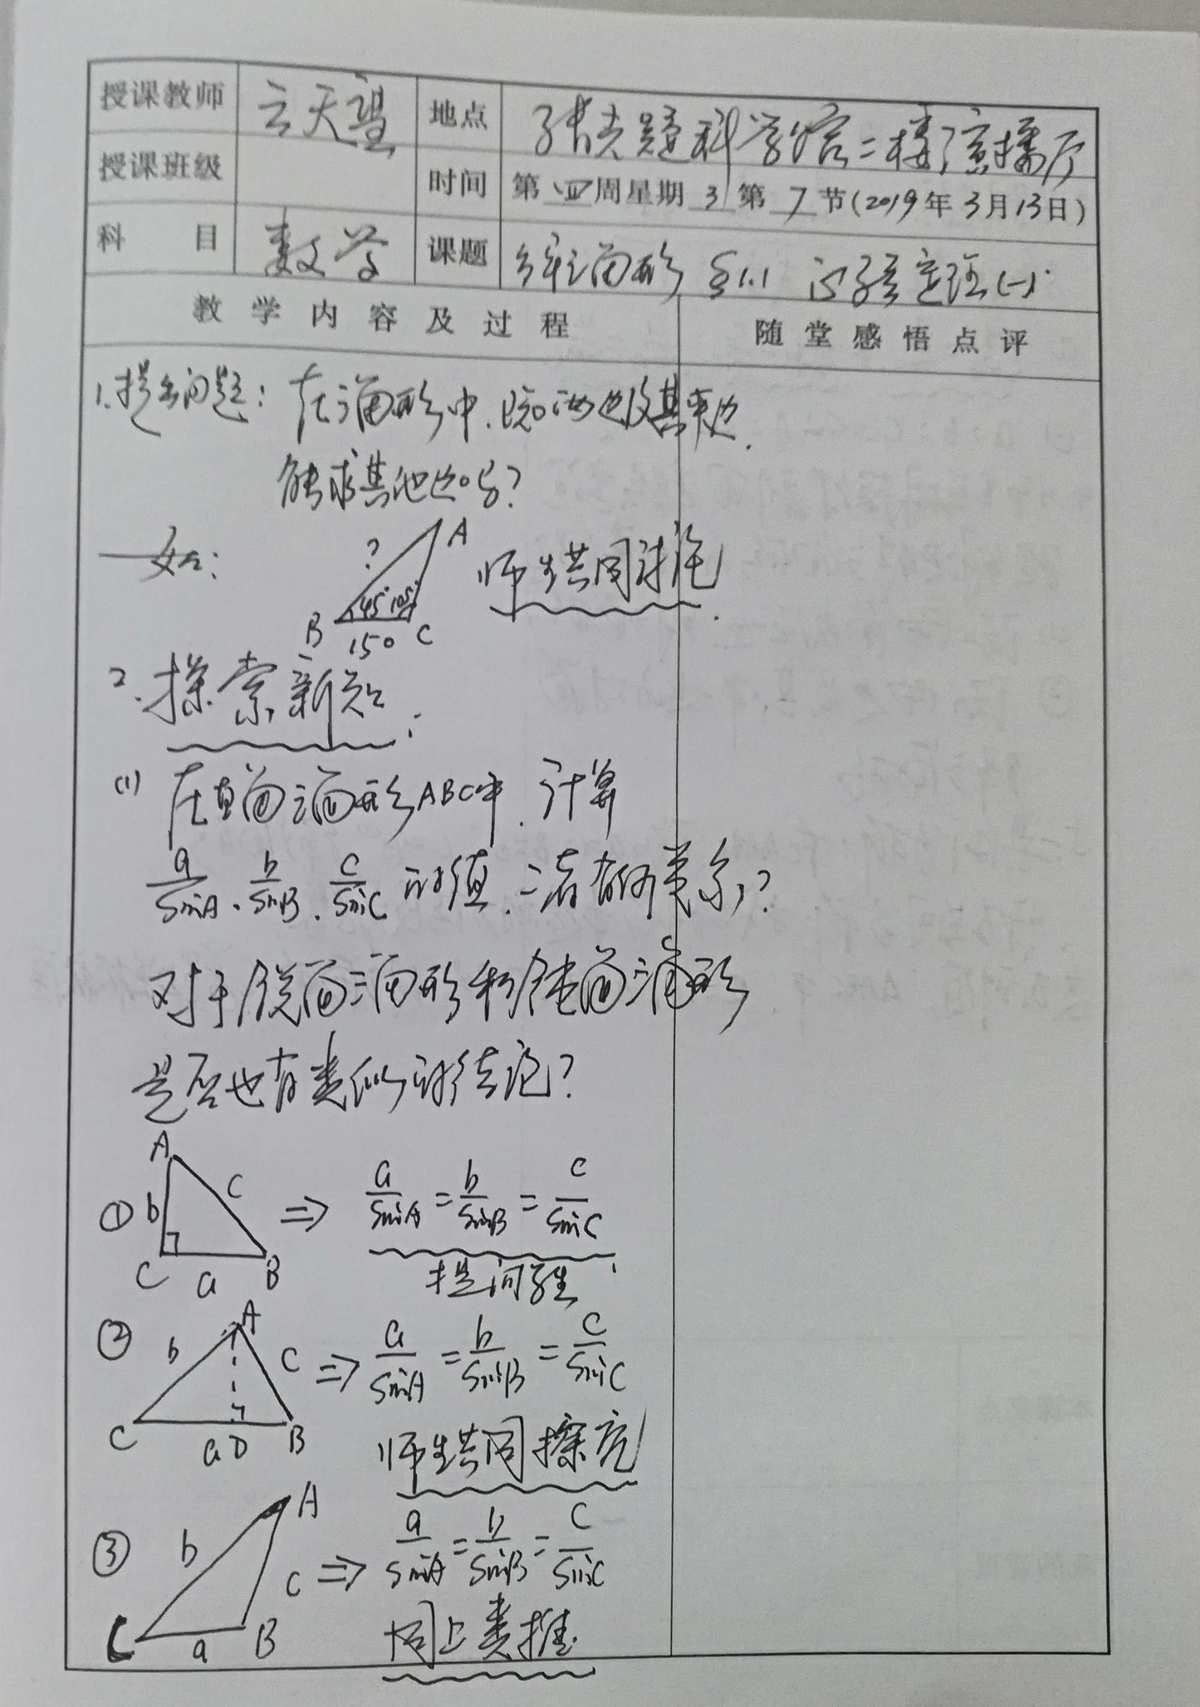 授课教师 云天望 地点 科学馆二楼演播厅
授课班级 时间 第四周星期3第7节(2019年3月13日)
科目 数学 课题 解三角形 §1.1 正弦定理(一)
教学内容及过程 随堂感悟点评
1.提出问题: 在三角形中,已知两角及其夹边,
能求其他边吗?
如:
? A
45° 105°
B 150 C
师生共同讨论.
2.探索新知:
(1) 在直角三角形ABC中,计算
a/sinA、b/sinB、c/sinC 的值,三者有何关系?
对于锐角三角形和钝角三角形
是否也有类似的结论?
① A b c C a B ⇒ a/sinA = b/sinB = c/sinC
提问学生
② A b c C a D B ⇒ a/sinA = b/sinB = c/sinC
师生共同探究
③ A b c C a B ⇒ a/sinA = b/sinB = c/sinC
同上类推